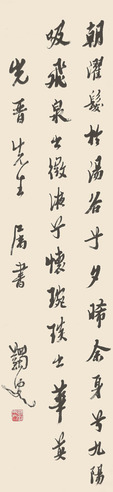 朝濯髮於湯谷兮夕晞余身兮九陽
吸飛泉之微液兮懷琬琰之華英
光晋先生 屬書